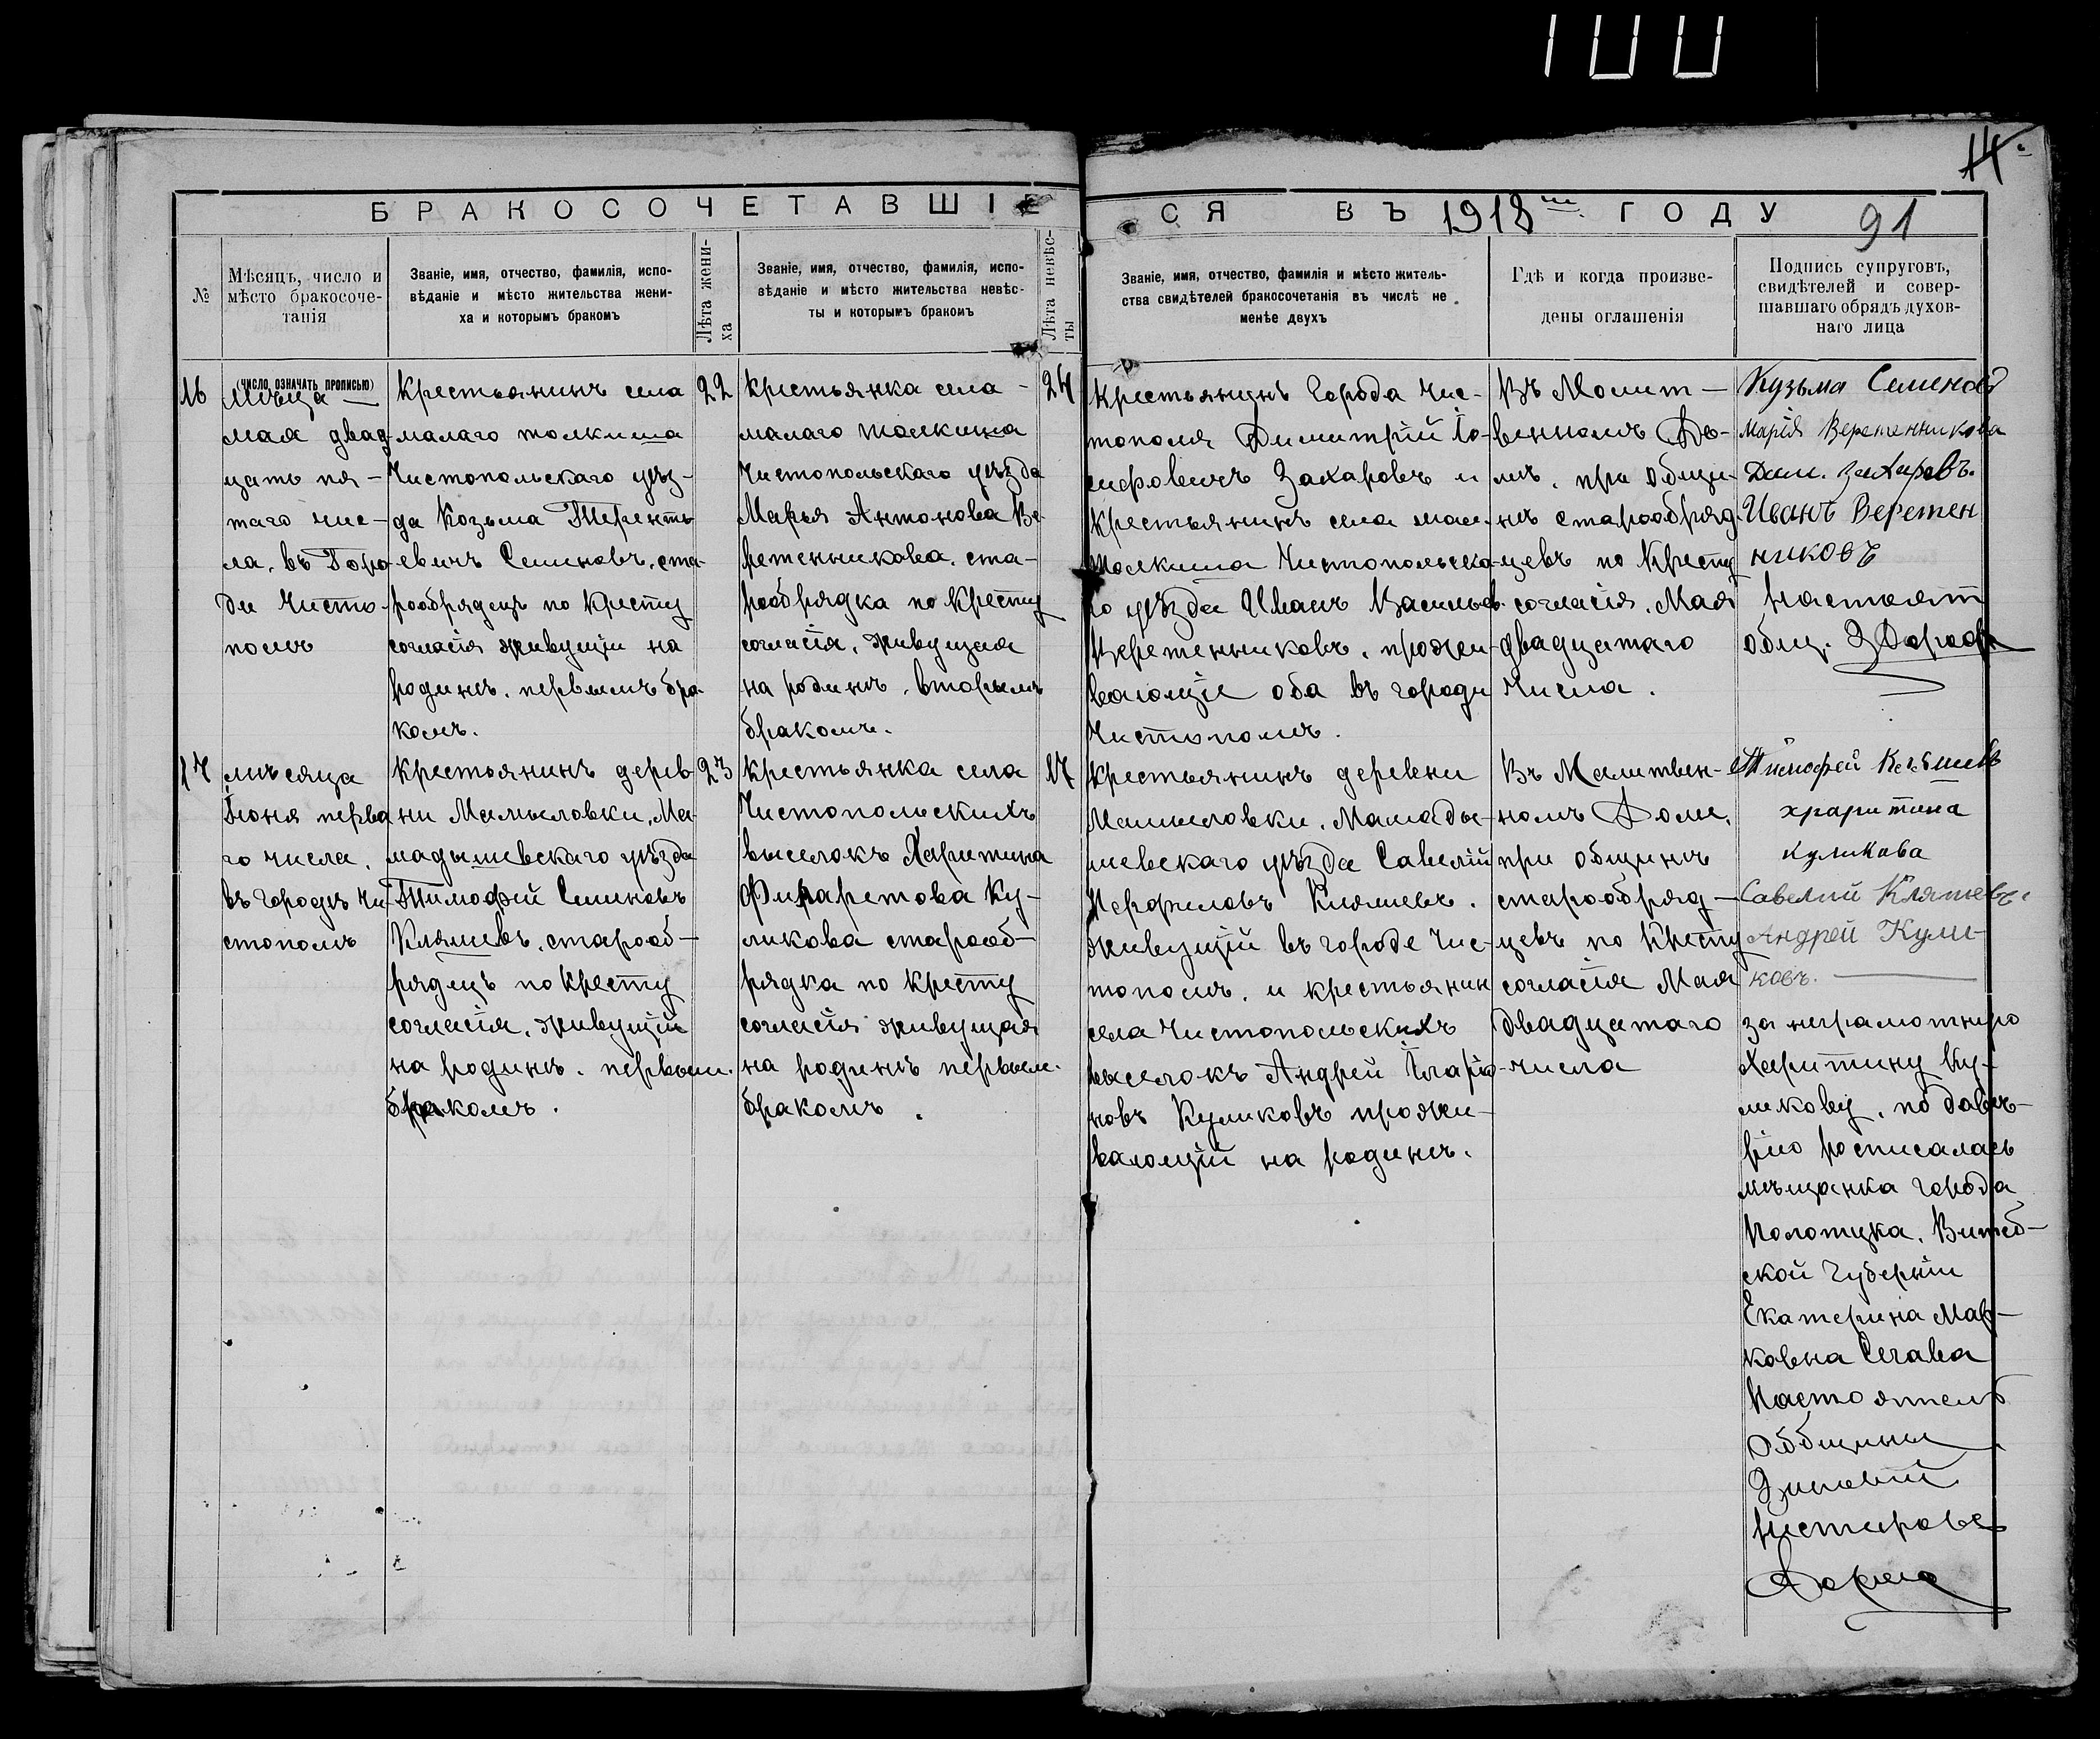 100
14.
БРАКОСОЧЕТАВШІЕСЯ ВЪ 1918 ГОДУ
91
№
Мѣсяцъ, число и
мѣсто бракосоче-
танія
Званіе, имя, отчество, фамилія, испо-
вѣданіе и мѣсто жительства жени-
ха и которымъ бракомъ
Лѣта жени-
ха
Званіе, имя, отчество, фамилія, испо-
вѣданіе и мѣсто жительства невѣс-
ты и которымъ бракомъ
Лѣта невѣс-
ты
Званіе, имя, отчество, фамилія и мѣсто житель-
ства свидѣтелей бракосочетанія въ числѣ не
менѣе двухъ
Гдѣ и когда произве-
дены оглашенія
Подпись супруговъ,
свидѣтелей и совер-
шавшаго обрядъ духов-
наго лица
16
(число означать прописью)
Мѣсяца
мая двад-
цать пя-
таго чис-
ла, въ Горо-
де Чисто-
поль
Крестьянинъ села
малаго толкиша
Чистопольскаго уѣз-
да Козьма Терентъ
евичъ Семиновъ, ста-
рообрядецъ по Кресту
согласія живущій на
родинѣ. первымъ бра-
комъ.
22
Крестьянка села
малаго толкиша
Чистопольскаго уѣзда
Марья Антонова Ве-
ретенникова. ста-
рообрядка по Кресту
согласія, живущая
на родинѣ. вторымъ
бракомъ.
24
Крестьянинъ Города Чис-
тополя Димитрій Іо-
сифовичъ Захаровъ и
крестьянинъ села мал
толкиша Чистопольска-
го уѣзда Иванъ Васильев.
Веретенниковъ. прожи-
вающіе оба въ городе
Чистополѣ.
Въ Молит-
венномъ До-
мѣ, при общи-
нѣ старообряд-
цевъ по Кресту
согласія. Мая
двадцатаго
Числа.
Кузьма Семеновъ
Марія Веретенникова
Дим. Захаровъ.
Иванъ Веретен
никовъ
Настоят
общ.
17
мѣсяца
Іюня перва
го числа,
въ городѣ Чи-
стополѣ
Крестьянинъ дерев
ни Мамыловки, Ма-
мадышевскаго уѣзда
Тимофей Семиновъ
Кляшевъ, старооб-
рядецъ по Кресту
согласія, живущій
на родинѣ. первым.
бракомъ.
23
Крестьянка села
Чистопольскихъ
выселокъ Харитина
Филаретова Ку-
ликова старооб-
рядка по Кресту
согласія живущая
на родинѣ первым.
бракомъ.
17
Крестьянинъ деревни
Мамыловки, Мамады-
шевскаго уѣзда Савелій
Перфиловъ Кляшевъ.
живущій въ городе Чис-
тополѣ, и крестьянин
села Чистопольскихъ
выселокъ Андрей Иларіо-
новъ Куликовъ прожи-
вающій на родинѣ.
Въ Малитвен-
номъ Доме,
при общинѣ
старообряд-
цевъ по Кресту
согласія Мая
двадцатаго
числа
Тимофей
храритина
куликова
Савелий Кляшевъ.
Андрей Кули-
ковъ.
за неграмотную
Харитину Ку-
ликову, по довѣ-
рію росписалась
мѣщанка города
Полотцка, Витеб-
ской Губерніи
Екатерина Мар-
ковна
Настоятель
Общины
Зиновій